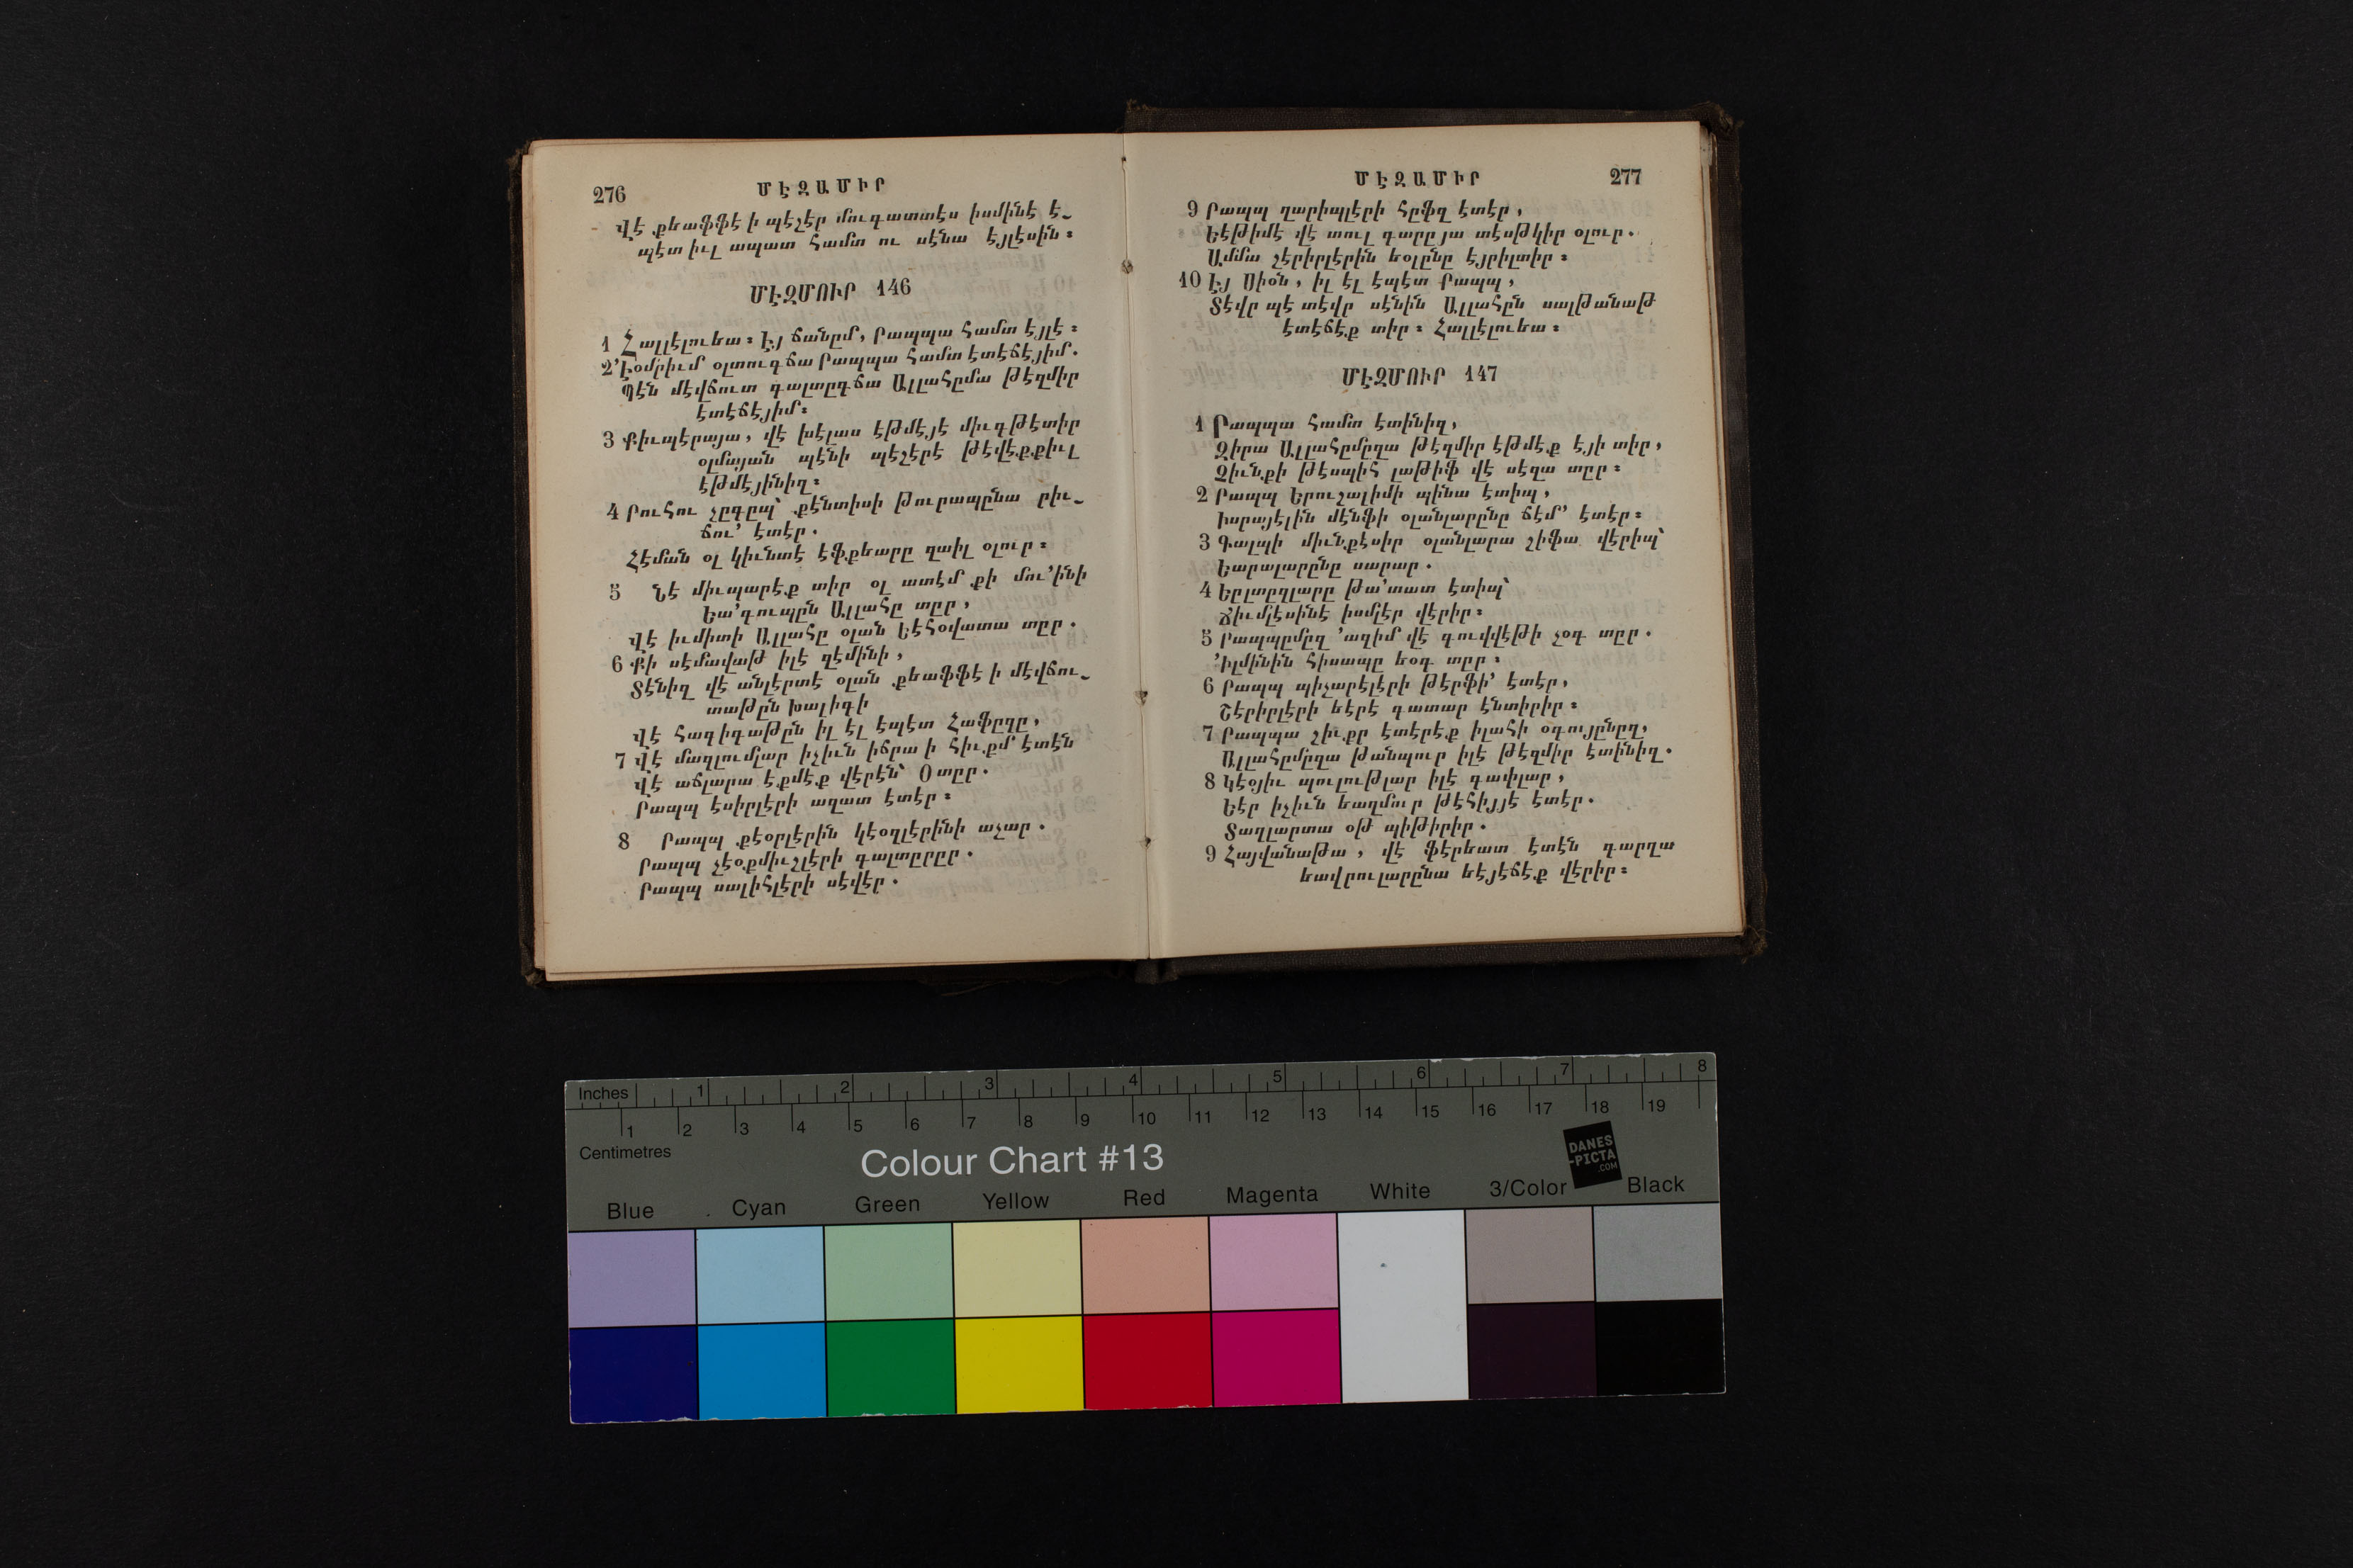 276
ՄԷԶԱՄԻՐ
վէ քեաֆֆէ ի պէշէր մուգատտէս իսմինէ է֊
պէտ իւլ ապատ համտ ու սէնա էյլէսին։
ՄԷԶՄՈՒՐ 146
1 Հալլէլուեա։ Էյ ճանըմ, Րապպա համտ էյլէ։
2 ՚Էօմրիւմ օլտուգճա Րապպա համտ էտէճէյիմ.
Պէն մէվճուտ գալտըգճա Ալլահըմա թէզմիր
էտէճէյիմ։
3 Քիւպէրայա, վէ խէլաս էթմէյէ միւգթէտիր
օլմայան պէնի պէշէրէ թէվէքքիւլ
էթմէյինիզ։
4 Րուհու չըգըպ՝ քէնտիսի թուրապընա րիւ֊
ճու՚ էտէր.
Հէման օլ կիւնտէ էֆքեարը զաիլ օլուր։
5 Նէ միւպարէք տիր օլ ատէմ քի մու՚ինի
Եա՚գուպըն Ալլահը տըր,
Վէ իւմիտի Ալլահը օլան Եէհօվատա տըր.
6 Քի սէմավաթ իլէ զէմինի,
Տէնիզ վէ անլէրտէ օլան քեաֆֆէ ի մէվճու֊
տաթըն խալիգի
Վէ հագիգաթըն իլ էլ էպէտ Հաֆըզը,
7 Վէ մազլումլար իչիւն իճրա ի հիւքմ էտէն
Վէ աճլարա էքմէք վէրէն՝ Օ տըր.
Րապպ էսիրլէրի ազատ էտէր։
8 Րապպ քէօրլէրին կէօզլէրինի աչար.
Րապպ չէօքմիւշլէրի գալտըրըր.
Րապպ սալիհլէրի սէվէր.
ՄԷԶԱՄԻՐ
277
9 Րապպ ղարիպլէրի հըֆզ էտէր,
Եէթիմէ վէ տուլ գարըյա տէսթկիր օլուր.
Ամմա շէրիրլէրին եօլընը էյրիլտիր։
10 Էյ Սիօն, իլ էլ էպէտ Րապպ,
Տէվր պէ տէվր սէնին Ալլահըն սալթանաթ
էտէճէք տիր։ Հալլէլուեա։
ՄԷԶՄՈՒՐ 147
1 Րապպա համտ էտինիզ,
Զիրա Ալլահըմըզա թէզմիր էթմէք էյի տիր,
Չիւնքի թէսպիհ լաթիֆ վէ սէզա տըր։
2 Րապպ Երուշալիմի պինա էտիպ,
Իսրայէլին մէնֆի օլանլարընը ճէմ՚ էտէր։
3 Գալպի միւնքէսիր օլանլարա շիֆա վէրիպ՝
Եարալարընը սարար.
4 Եըլտըզլարը թա՚տատ էտիպ՝
Ճիւմլէսինէ իսմլէր վէրիր։
5 Րապպըմըզ ՚ազիմ վէ գուվվէթի չօգ տըր.
՚Իլմինին հիսապը եօգ տըր։
6 Րապպ պիչարէլէրի թէրֆի՚ էտէր,
Շէրիրլէրի եէրէ գատար էնտիրիր։
7 Րապպա շիւքր էտէրէք իլահի օգույընըզ,
Ալլահըմըզա թանպուր իլէ թէզմիր էտինիզ.
8 Կէօյիւ պուլութլար իլէ գափլար,
Եէր իչիւն եաղմուր թէհիյյէ էտէր.
Տաղլարտա օթ պիթիրիր.
9 Հայվանաթա, վէ ֆէրեատ էտէն գարղա
եավրուլարընա եէյէճէք վէրիր։
Inches 1 2 3 4 5 6 7 8
1 2 3 4 5 6 7 8 9 10 11 12 13 14 15 16 17 18 19
Centimetres
Colour Chart #13
DANES
-PICTA
.COM
Blue Cyan Green Yellow Red Magenta White 3/Color Black